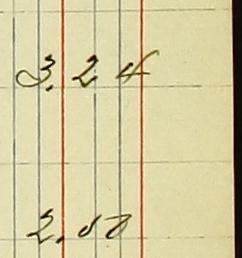 3.24
2.50